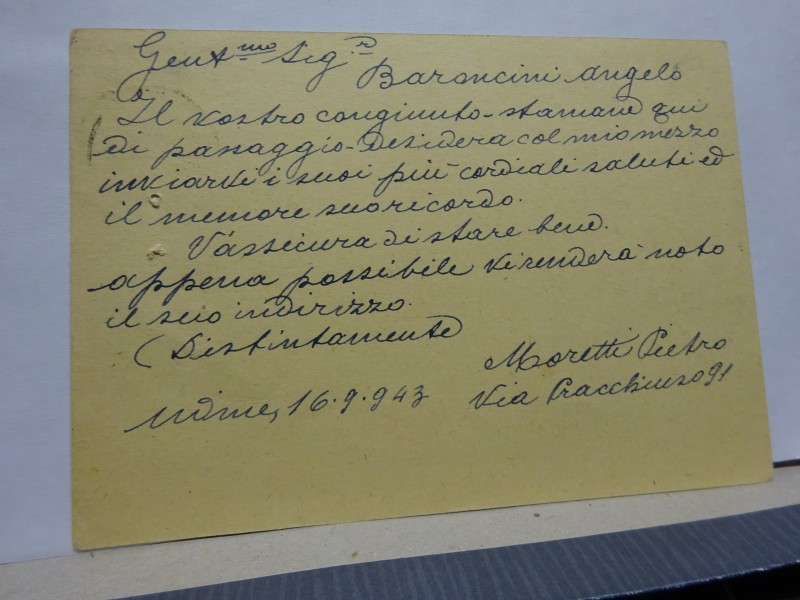 Gent.mo Sig.r
Baroncini Angelo
Il vostro congiunto - stamane qui
di passaggio - desidera col mio mezzo
inviarvi i suoi più cordiali saluti ed
il memore suo ricordo.
V'assicura di stare bene.
appena possibile vi renderà noto
il suo indirizzo.
Distintamente
Moretti Pietro
Via Pracchiuso 91
Udine, 16.9.943